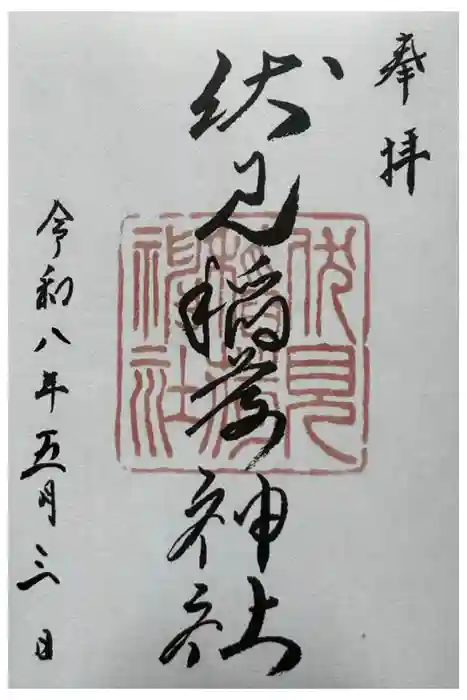 奉拝
伏見稲荷神社
伏見
稲荷
神社
令和八年五月三日